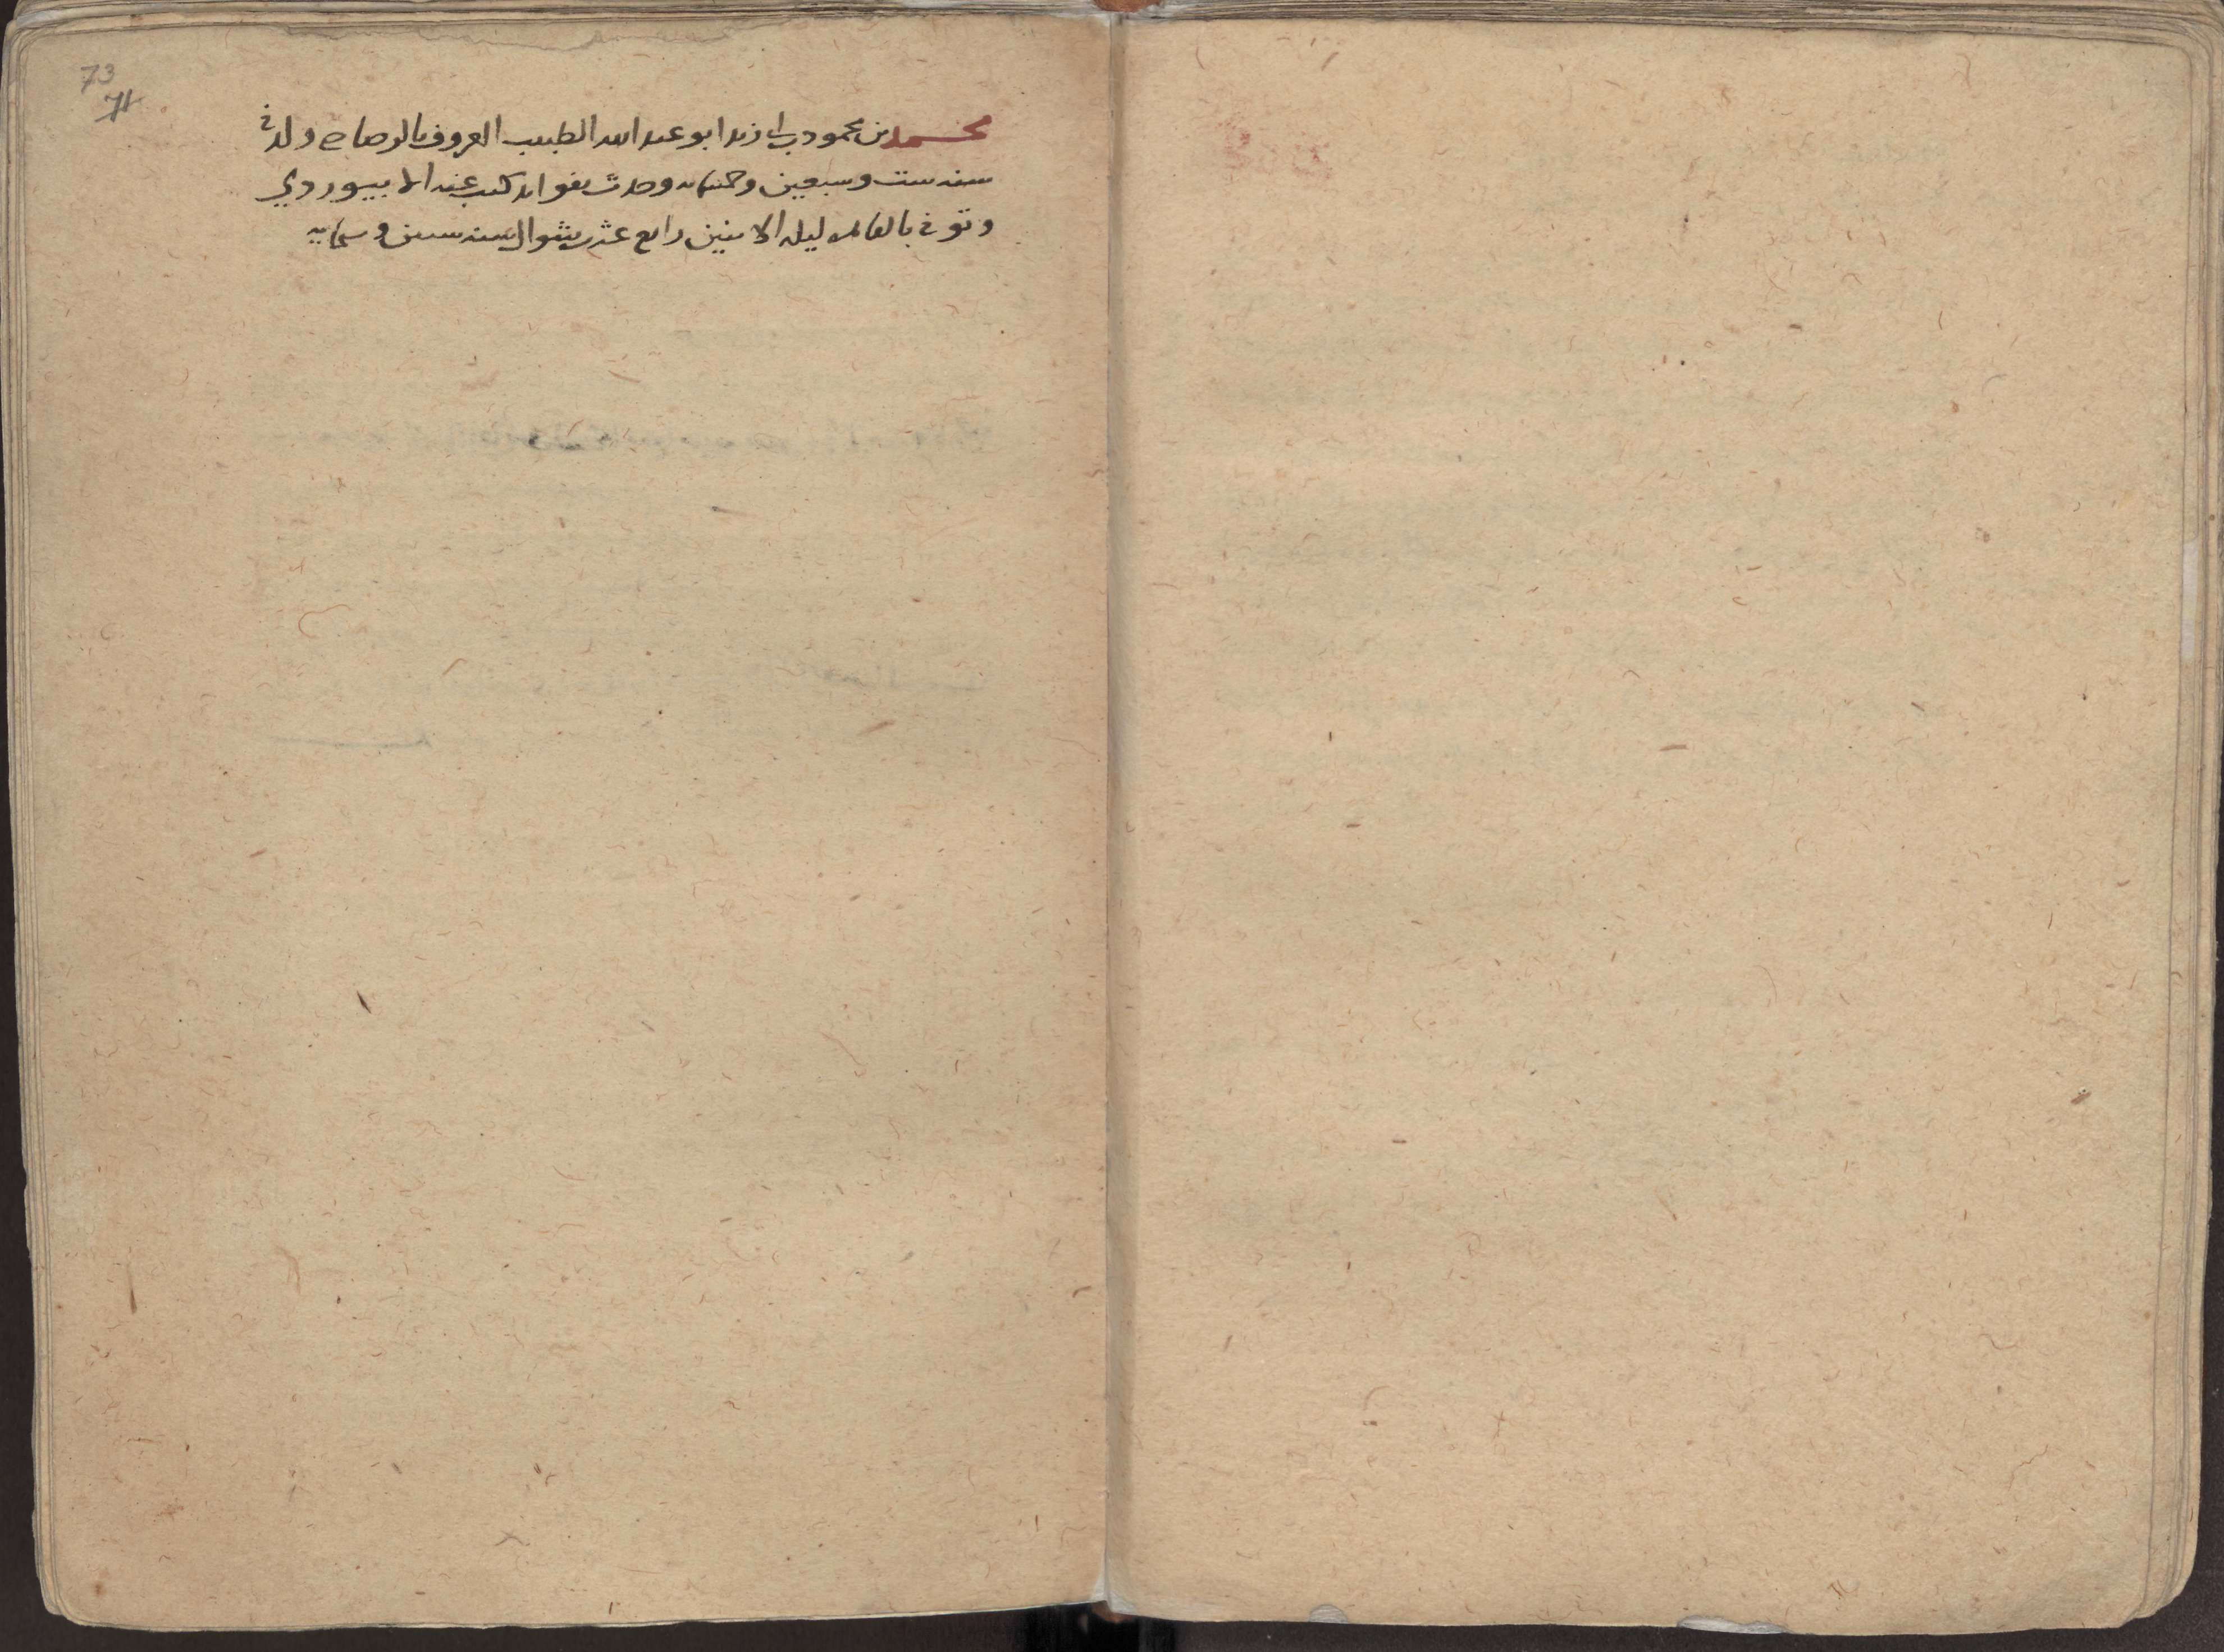 73
71
محمد بن محمود بن ابي زيد ابو عبد الله الطبيب المعروف بالرصاص ولد في
سنه ست وسبعين وخمسمايه وحدث بفوايد كتب عنه الابيوردي
وتوفي بالقاهره ليله الاثنين رابع عشر شوال سنه ستين وستمايه